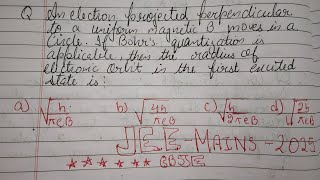 Q An electron projected perpendicular
to a uniform magnetic B moves in a
Circle. If Bohr's quantization is
applicable, then the radius of
electronic orbit in the first excited
state is:
a) √h/πeB b) √4h/πeB c) √h/2πeB d) √2h/πeB
JEE-MAINS-2025
★ ★ ★ ★ ★ CBSE